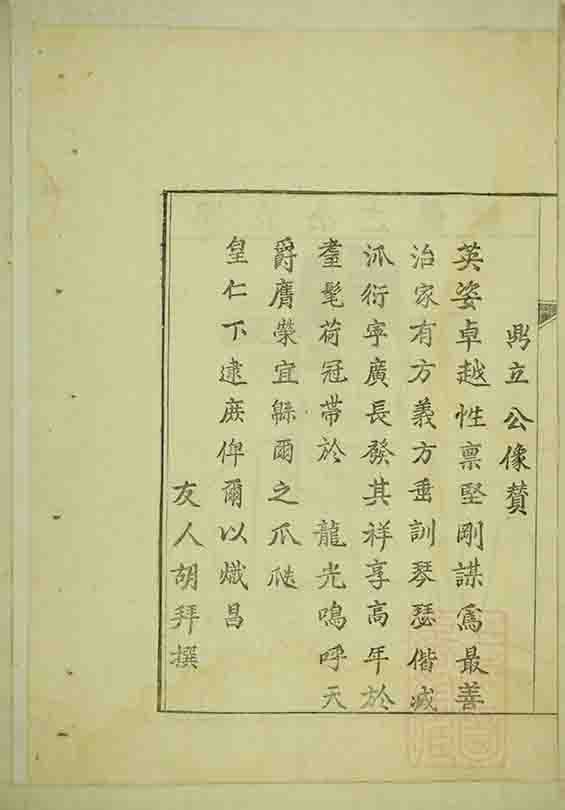 鼎立公像贊
英姿卓越性禀堅剛謀爲最善
治家有方義方垂訓琴瑟偕臧
派衍寜廣長發其祥享高年於
耋髦荷冠带於 龍光鳴呼天
爵膺榮宜緜爾之瓜瓞
皇仁下逮庻俾爾以熾昌
友人胡拜撰